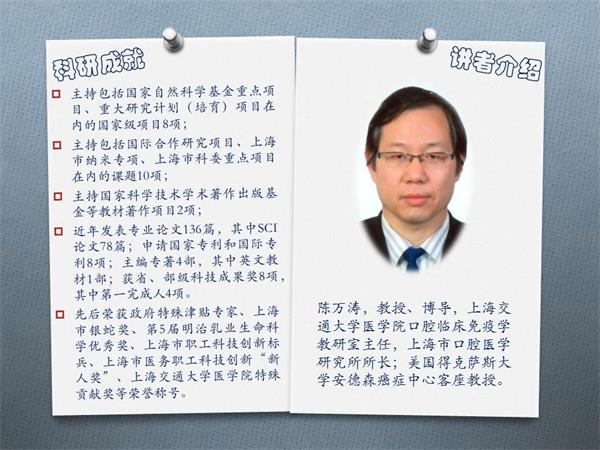 科研成就
主持包括国家自然科学基金重点项
目、重大研究计划（培育）项目在
内的国家级项目8项；
主持包括国际合作研究项目、上海
市纳米专项、上海市科委重点项目
在内的课题10项；
主持国家科学技术学术著作出版基
金等教材著作项目2项；
近年发表专业论文136篇，其中SCI
论文78篇；申请国家专利和国际专
利8项；主编专著4部，其中英文教
材1部；获省、部级科技成果奖8项，
其中第一完成人4项。
先后荣获政府特殊津贴专家、上海
市银蛇奖、第5届明治乳业生命科
学优秀奖、上海市职工科技创新标
兵、上海市医务职工科技创新“新
人奖”、上海交通大学医学院特殊
贡献奖等荣誉称号。
讲者介绍
陈万涛，教授、博导，上海交
通大学医学院口腔临床免疫学
教研室主任，上海市口腔医学
研究所所长；美国得克萨斯大
学安德森癌症中心客座教授。